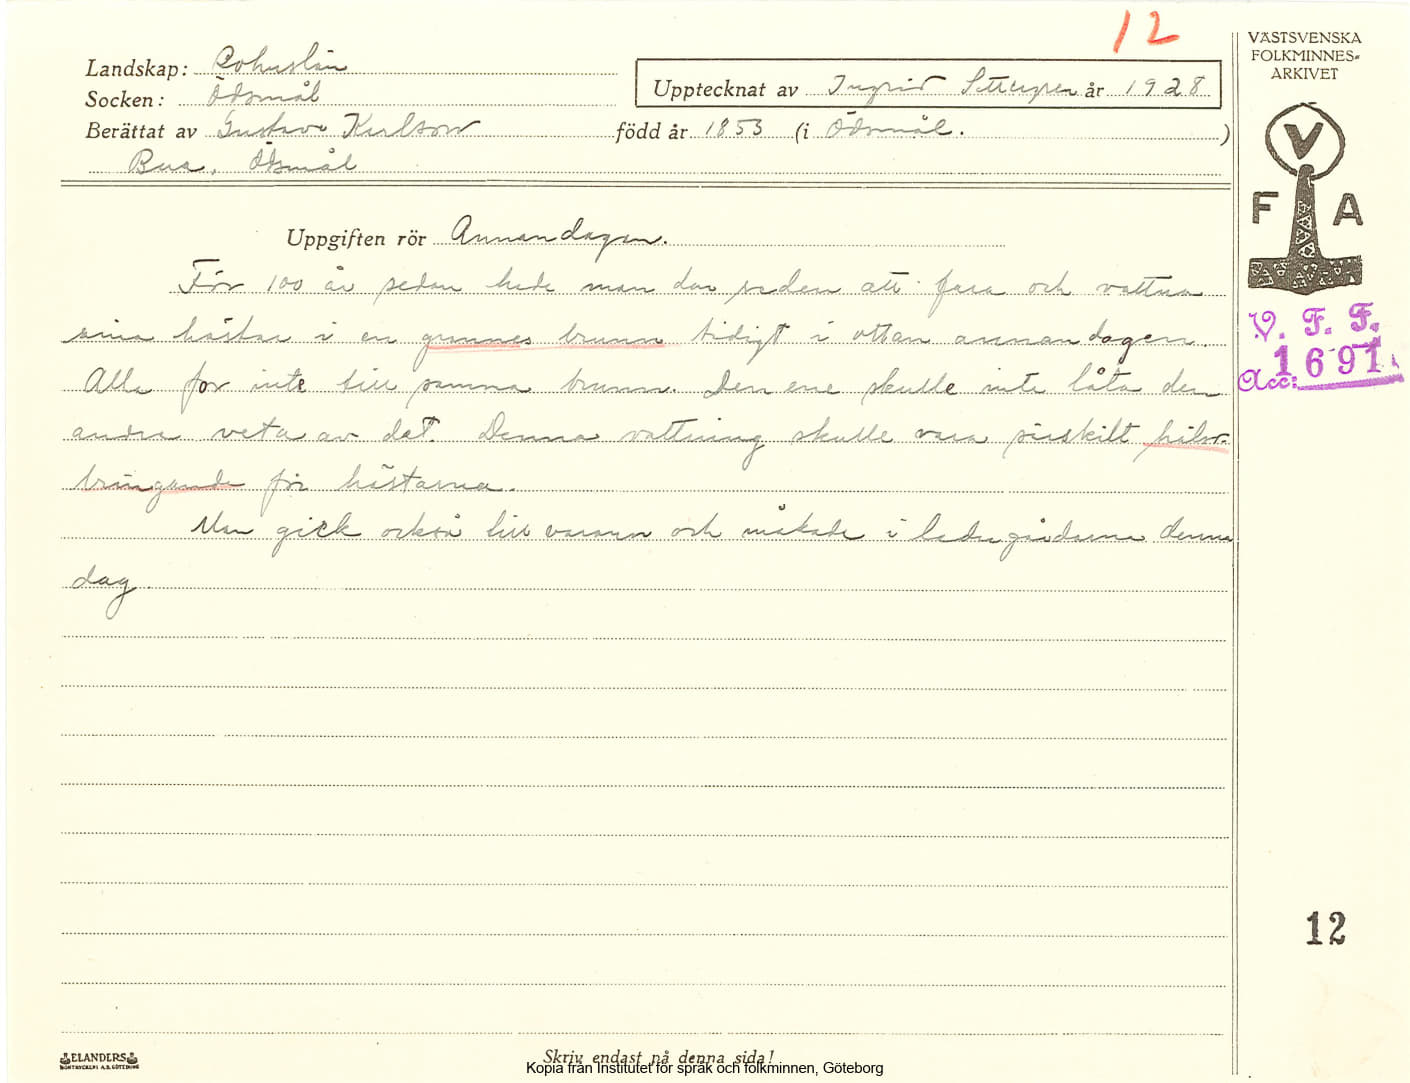 12
VÄSTSVENSKA
FOLKMINNES=
ARKIVET
Landskap: Bohuslän
Socken: Ödsmål
Upptecknat av Ingrid år 1928
Berättat av Gustava Karlsson född år 1853 (i Ödsmål. )
Bua, Ödsmål
V
F A
Uppgiften rör Annandagen.
För 100 år sedan hade man den seden att fara och vattna
sina hästar i en grannes brunn tidigt i ottan annandagen.
Alla for inte till samma brunn. Den ene skulle inte låta den
andra veta av det. Denna vattning skulle vara särskilt hälso-
bringande för hästarna.
Man gick också till varann och måkade i ladugårdarna denna
dag.
V. F. F.
Acc: 1691
12
ELANDERS
BOKTRYCKERI A.B. GÖTEBORG
Skriv endast på denna sida!
Kopia från Institutet för språk och folkminnen, Göteborg